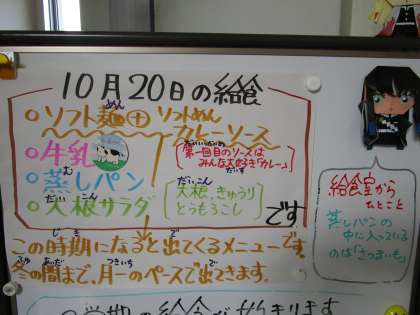 10月20日の給食
ソフト麺 ソフトめん
カレーソース
牛乳
第一回目のソースは
みんな大好き「カレー」
蒸しパン
大根サラダ
大根、きゅうり
とうもろこし
です
この時期になると出てくるメニューです。
冬の間まで、月一のペースで出てきます。
給食室から
ひとこと
蒸しパンの
中に入っている
のは「さつまいも」